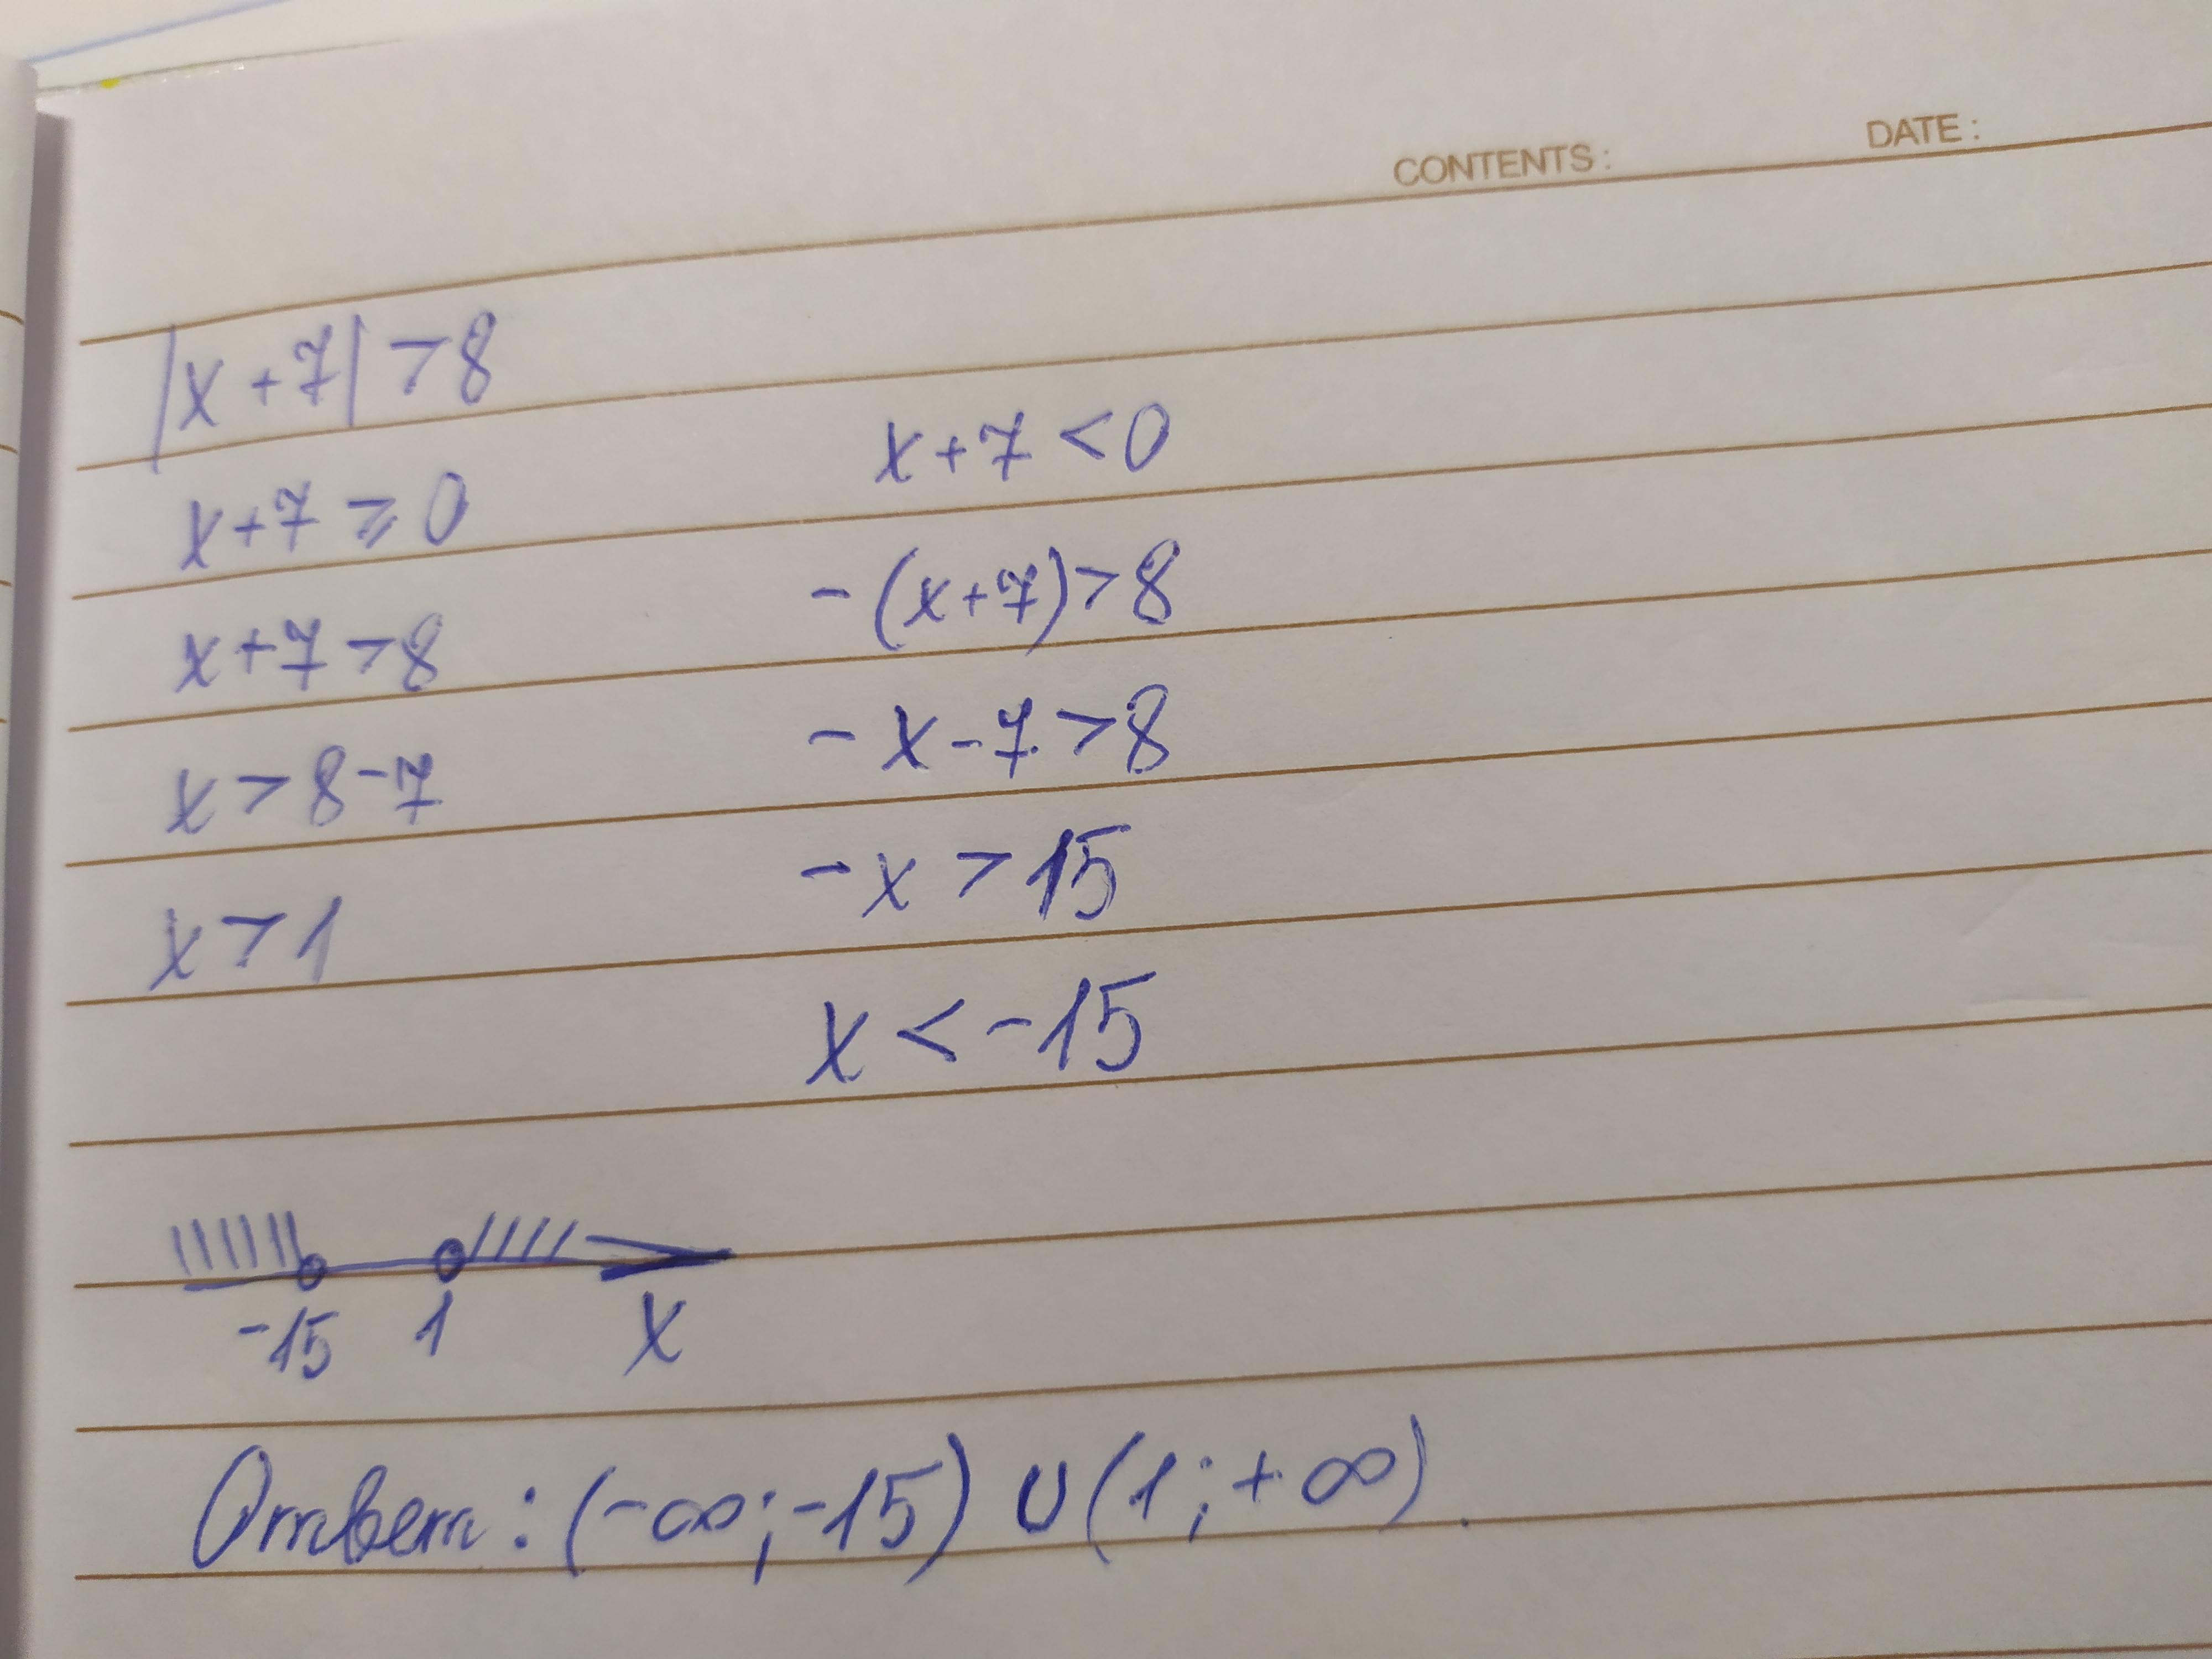 CONTENTS: DATE:
|x+7|>8
x+7≥0 x+7<0
x+7>8 -(x+7)>8
x>8-7 -x-7>8
x>1 -x>15
x<-15
-15 1 x
Ответ: (-∞;-15)∪(1;+∞).